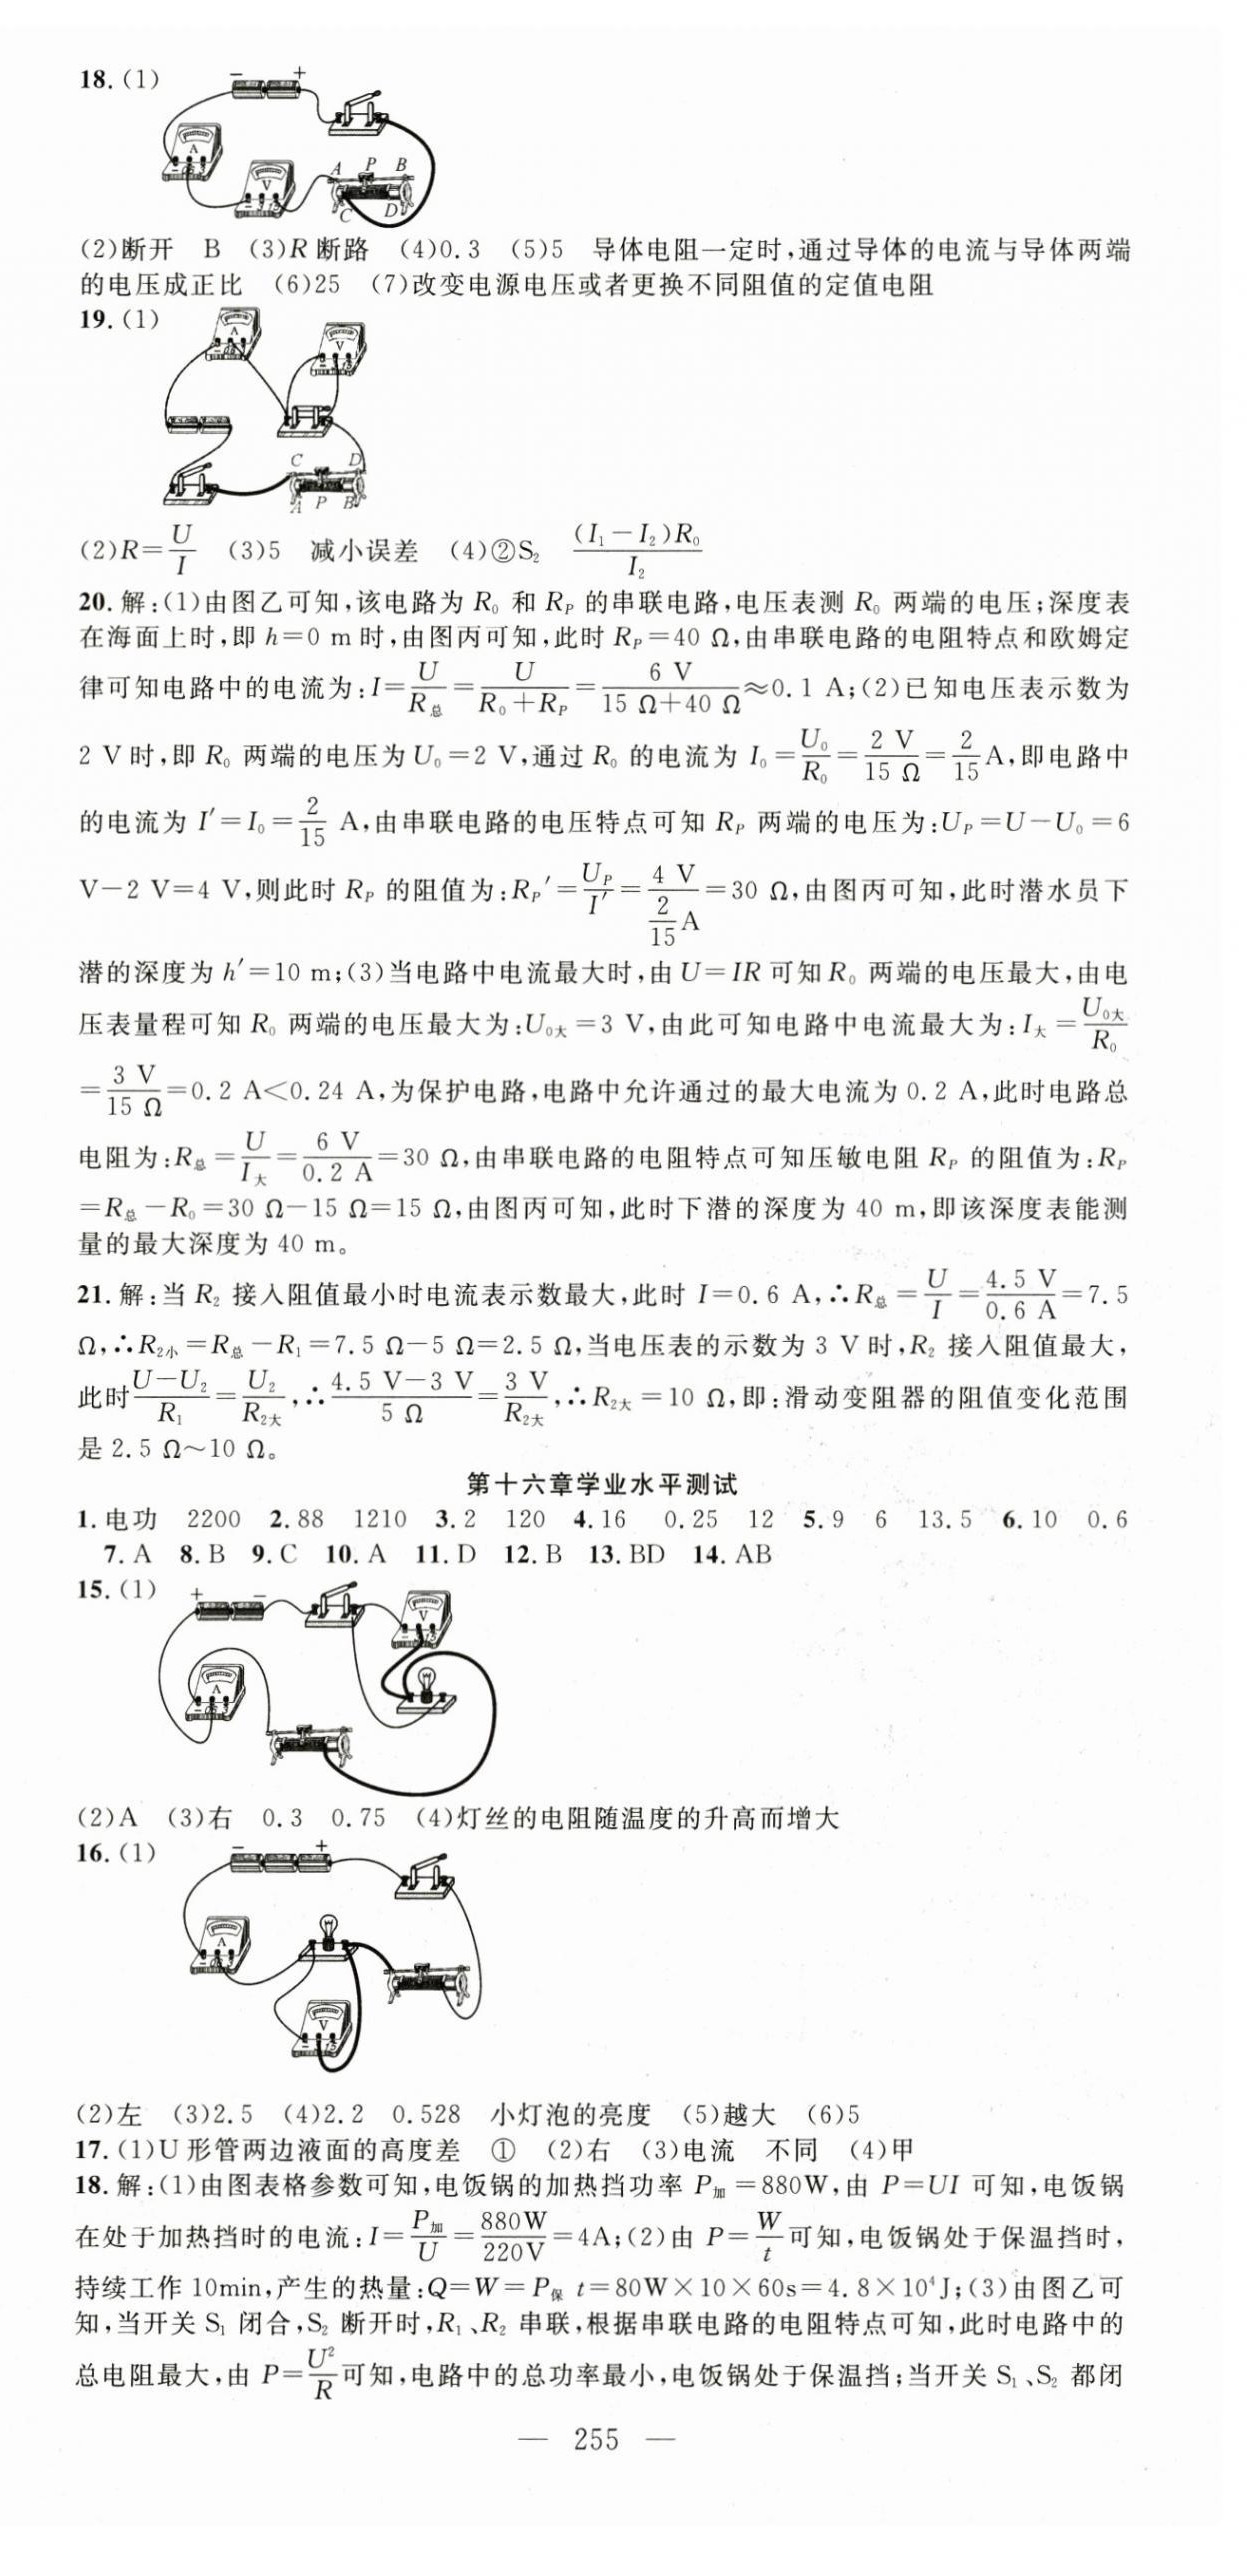 18.(1)
− +
A
V
A P B
C D
(2)断开 B (3)R 断路 (4)0.3 (5)5 导体电阻一定时,通过导体的电流与导体两端
的电压成正比 (6)25 (7)改变电源电压或者更换不同阻值的定值电阻
19.(1)
A
V
C D
A P B
(2)R=U/I (3)5 减小误差 (4)②S₂ (I₁−I₂)R₀/I₂
20.解:(1)由图乙可知,该电路为 R₀ 和 R_P 的串联电路,电压表测 R₀ 两端的电压;深度表
在海面上时,即 h=0 m 时,由图丙可知,此时 R_P=40 Ω,由串联电路的电阻特点和欧姆定
律可知电路中的电流为:I=U/R总=U/(R₀+R_P)=6 V/(15 Ω+40 Ω)≈0.1 A;(2)已知电压表示数为
2 V 时,即 R₀ 两端的电压为 U₀=2 V,通过 R₀ 的电流为 I₀=U₀/R₀=2 V/15 Ω=2/15 A,即电路中
的电流为 I′=I₀=2/15 A,由串联电路的电压特点可知 R_P 两端的电压为:U_P=U−U₀=6
V−2 V=4 V,则此时 R_P 的阻值为:R_P′=U_P/I′=4 V/(2/15 A)=30 Ω,由图丙可知,此时潜水员下
潜的深度为 h′=10 m;(3)当电路中电流最大时,由 U=IR 可知 R₀ 两端的电压最大,由电
压表量程可知 R₀ 两端的电压最大为:U₀大=3 V,由此可知电路中电流最大为:I大=U₀大/R₀
=3 V/15 Ω=0.2 A<0.24 A,为保护电路,电路中允许通过的最大电流为 0.2 A,此时电路总
电阻为:R总=U/I大=6 V/0.2 A=30 Ω,由串联电路的电阻特点可知压敏电阻 R_P 的阻值为:R_P
=R总−R₀=30 Ω−15 Ω=15 Ω,由图丙可知,此时下潜的深度为 40 m,即该深度表能测
量的最大深度为 40 m。
21.解:当 R₂ 接入阻值最小时电流表示数最大,此时 I=0.6 A,∴R总=U/I=4.5 V/0.6 A=7.5
Ω,∴R₂小=R总−R₁=7.5 Ω−5 Ω=2.5 Ω,当电压表的示数为 3 V 时,R₂ 接入阻值最大,
此时(U−U₂)/R₁=U₂/R₂大,∴(4.5 V−3 V)/5 Ω=3 V/R₂大,∴R₂大=10 Ω,即:滑动变阻器的阻值变化范围
是 2.5 Ω~10 Ω。
第十六章学业水平测试
1.电功 2200 2.88 1210 3.2 120 4.16 0.25 12 5.9 6 13.5 6.10 0.6
7.A 8.B 9.C 10.A 11.D 12.B 13.BD 14.AB
15.(1)
+ −
V
A
(2)A (3)右 0.3 0.75 (4)灯丝的电阻随温度的升高而增大
16.(1)
− +
A
V
(2)左 (3)2.5 (4)2.2 0.528 小灯泡的亮度 (5)越大 (6)5
17.(1)U 形管两边液面的高度差 ① (2)右 (3)电流 不同 (4)甲
18.解:(1)由图表格参数可知,电饭锅的加热挡功率 P加=880W,由 P=UI 可知,电饭锅
在处于加热挡时的电流:I=P加/U=880W/220V=4A;(2)由 P=W/t可知,电饭锅处于保温挡时,
持续工作 10min,产生的热量:Q=W=P保 t=80W×10×60s=4.8×10⁴J;(3)由图乙可
知,当开关 S₁ 闭合,S₂ 断开时,R₁、R₂ 串联,根据串联电路的电阻特点可知,此时电路中的
总电阻最大,由 P=U²/R可知,电路中的总功率最小,电饭锅处于保温挡;当开关 S₁、S₂ 都闭
— 255 —